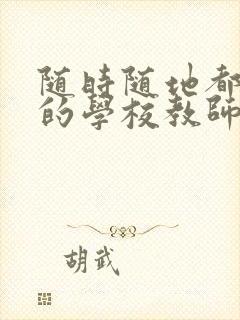 随時随地都
的學校教師
胡武